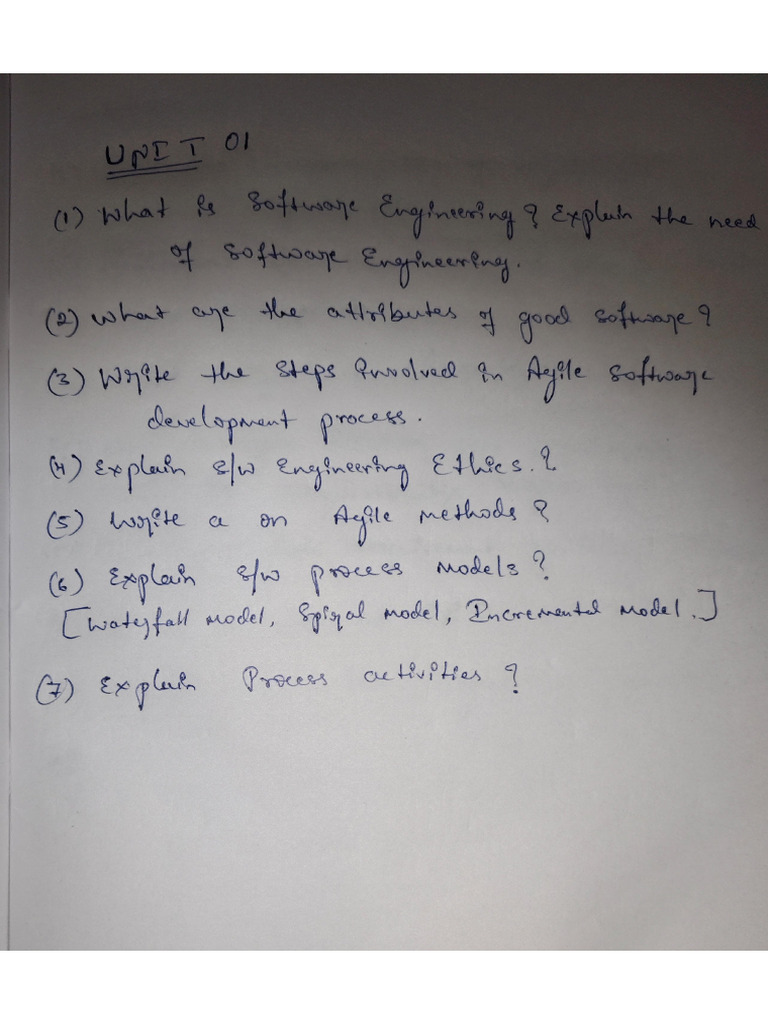 UNIT 01
(1) What is Software Engineering? Explain the need
of Software Engineering.
(2) What are the attributes of good software?
(3) Write the steps involved in Agile Software
development process.
(4) Explain s/w Engineering Ethics.?
(5) Write a on Agile methods?
(6) Explain s/w process models?
[Waterfall model, Spiral model, Incremental model.]
(7) Explain Process activities?